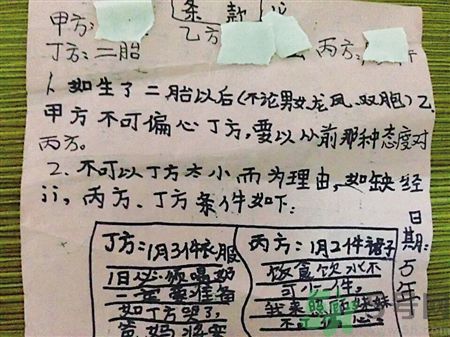 条款
甲方:
乙方
丙方:
丁方:二胎
1、如生了二胎以后(不论男女龙凤、双胞)乙
甲方不可偏心丁方,要以从前那种态度对
丙方。
2、不可以丁方太小而为理由,如缺经
济,丙方、丁方条件如下:
丁方:1月3件衣服
1日必须喝奶
一定要准备
如丁方哭了,
爸妈将要
丙方:1月2件裙子
饭食饮水不
可少一件。
我来照顾妹妹
不
日期:万年